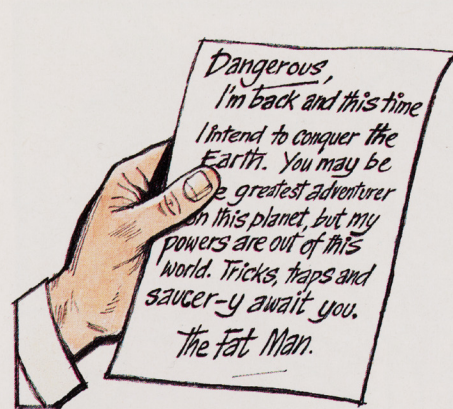 Dangerous,
I'm back and this time
I intend to conquer the
Earth. You may be
e greatest adventurer
on this planet, but my
powers are out of this
world. Tricks, traps and
saucer-y await you.
The Fat Man.